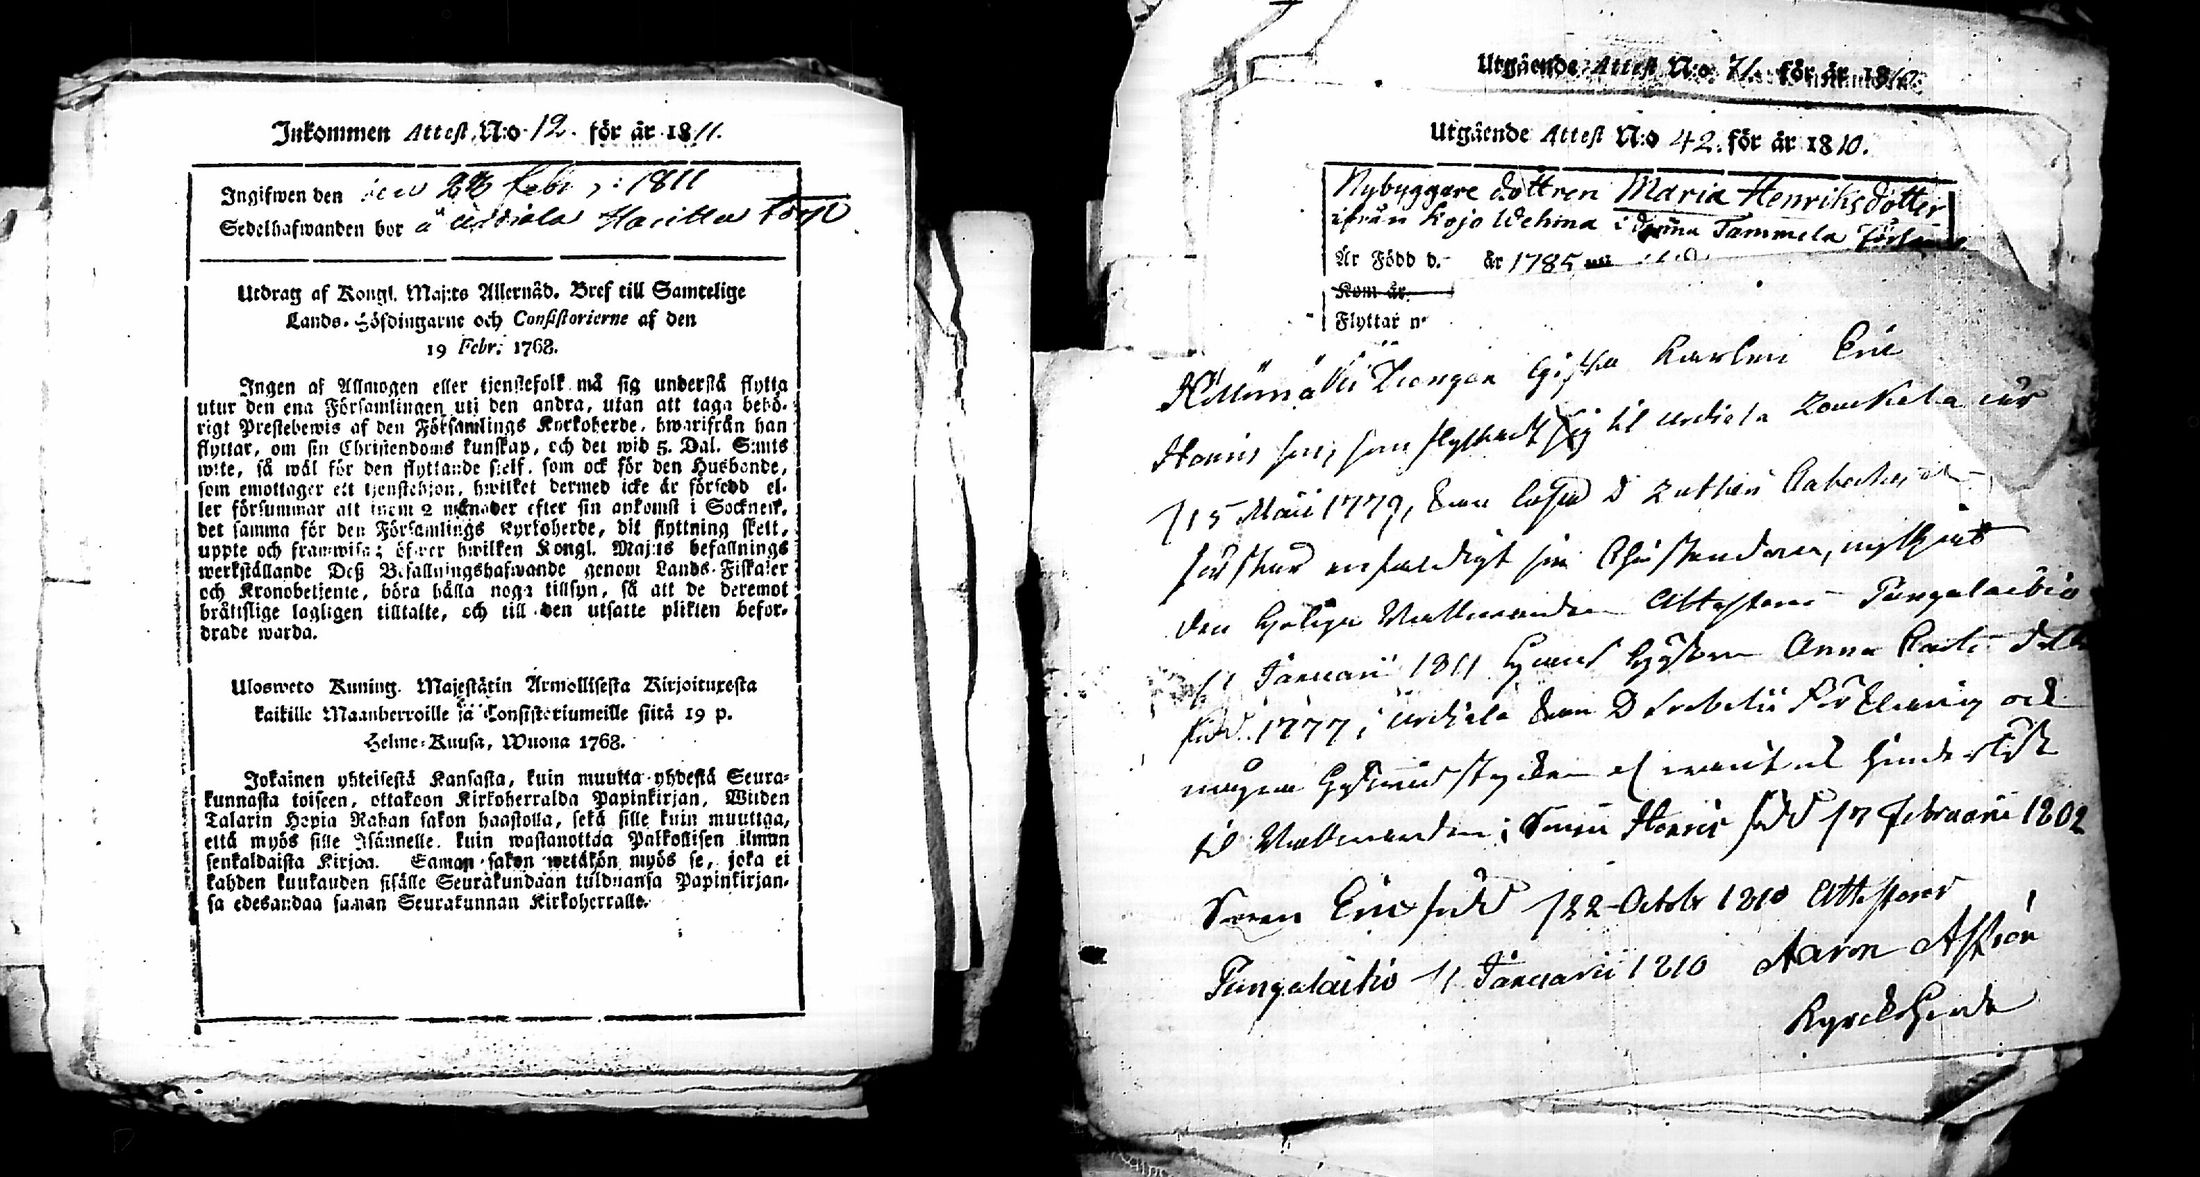 Inkommen Attest N:o 12. för år 1811.
Ingifwen den den 28 Febr. 1811
Sedelhafwanden bor å Urdiala Torp
Utdrag af Kongl. Maj:ts Allernåd. Bref till Samtelige
Lands-Höfdingarne och Consistorierne af den
19 Febr. 1768.
Ingen af Allmogen eller tjenstefolk må sig understå flytta
utur den ena Församlingen uti den andra, utan att taga behö-
rigt Prestebewis af den Församlings Kyrkoherde, hwarifrån han
flyttar, om sin Christendoms kunskap, och det wid 5. Dal. S:mts
wite, så wäl för den flyttande sjelf, som ock för den Husbonde,
som emottager ett tjenstehjon, hwilket dermed icke är försedd el-
ler försummar att inom 2 månader efter sin ankomst i Socknen,
det samma för den Församlings Kyrkoherde, dit flyttning skett,
uppte och framwisa; öfwer hwilken Kongl. Maj:ts befallnings
werkställande Deß Befallningshafwande genom Lands-Fiskaler
och Kronobetjente, böra hålla noga tillsyn, så att de deremot
bråttslige lagligen tilltalte, och till den utsatte plikten befor-
drade warda.
Ulosweto Kuning. Majestätin Armollisesta Kirjoituxesta
kaikille Maanherroille ja Consistoriumeille siitä 19 p.
Helme-Kuusa, Wuona 1768.
Jokainen yhteisestä Kansasta, kuin muutta yhdestä Seura-
kunnasta toiseen, ottakoon Kirkoherralda Papinkirjan, Wiiden
Talarin Hopia Rahan sakon haastolla, sekä sille kuin muuttaa,
että myös sille Isännelle, kuin wastanottaa Palkollisen ilman
senkaldaista Kirjaa. Saman sakon wetäkön myös se, joka ei
kahden kuukauden sisälle Seurakundaan tulduansa Papinkirjan-
sa edesandaa saman Seurakunnan Kirkoherralle.
Utgående Attest N:o 71. för år 1810.
Utgående Attest N:o 42. för år 1810.
Nybyggare dottren Maria Henriksdotter
ifrån Kojo Wehma i denna Tammela Församl.
Är Född d. - år 1785
Kom år
Flyttar
gifta karlen Eric
Henrics son, som flyttade sig til Urdiala
15 Maii 1779, kan läsa D
förstår enfaldigt sin Christendom, nyttjat
den heliga Nattvarden Attesteras Pungalaitio
1 Januarii 1811 Hans hustru Anna Carls dotter
född 1777 i Urdiala kan D Svebelii Förklaring och
några
til Nattvarden; Sonen Henric född 17 Februarii 1802
Sonen Eric född 22 Octobr 1810 Attesterar
Pungalaitio 1 Januarii 1810 Aaron Aström
Kyrckoherde